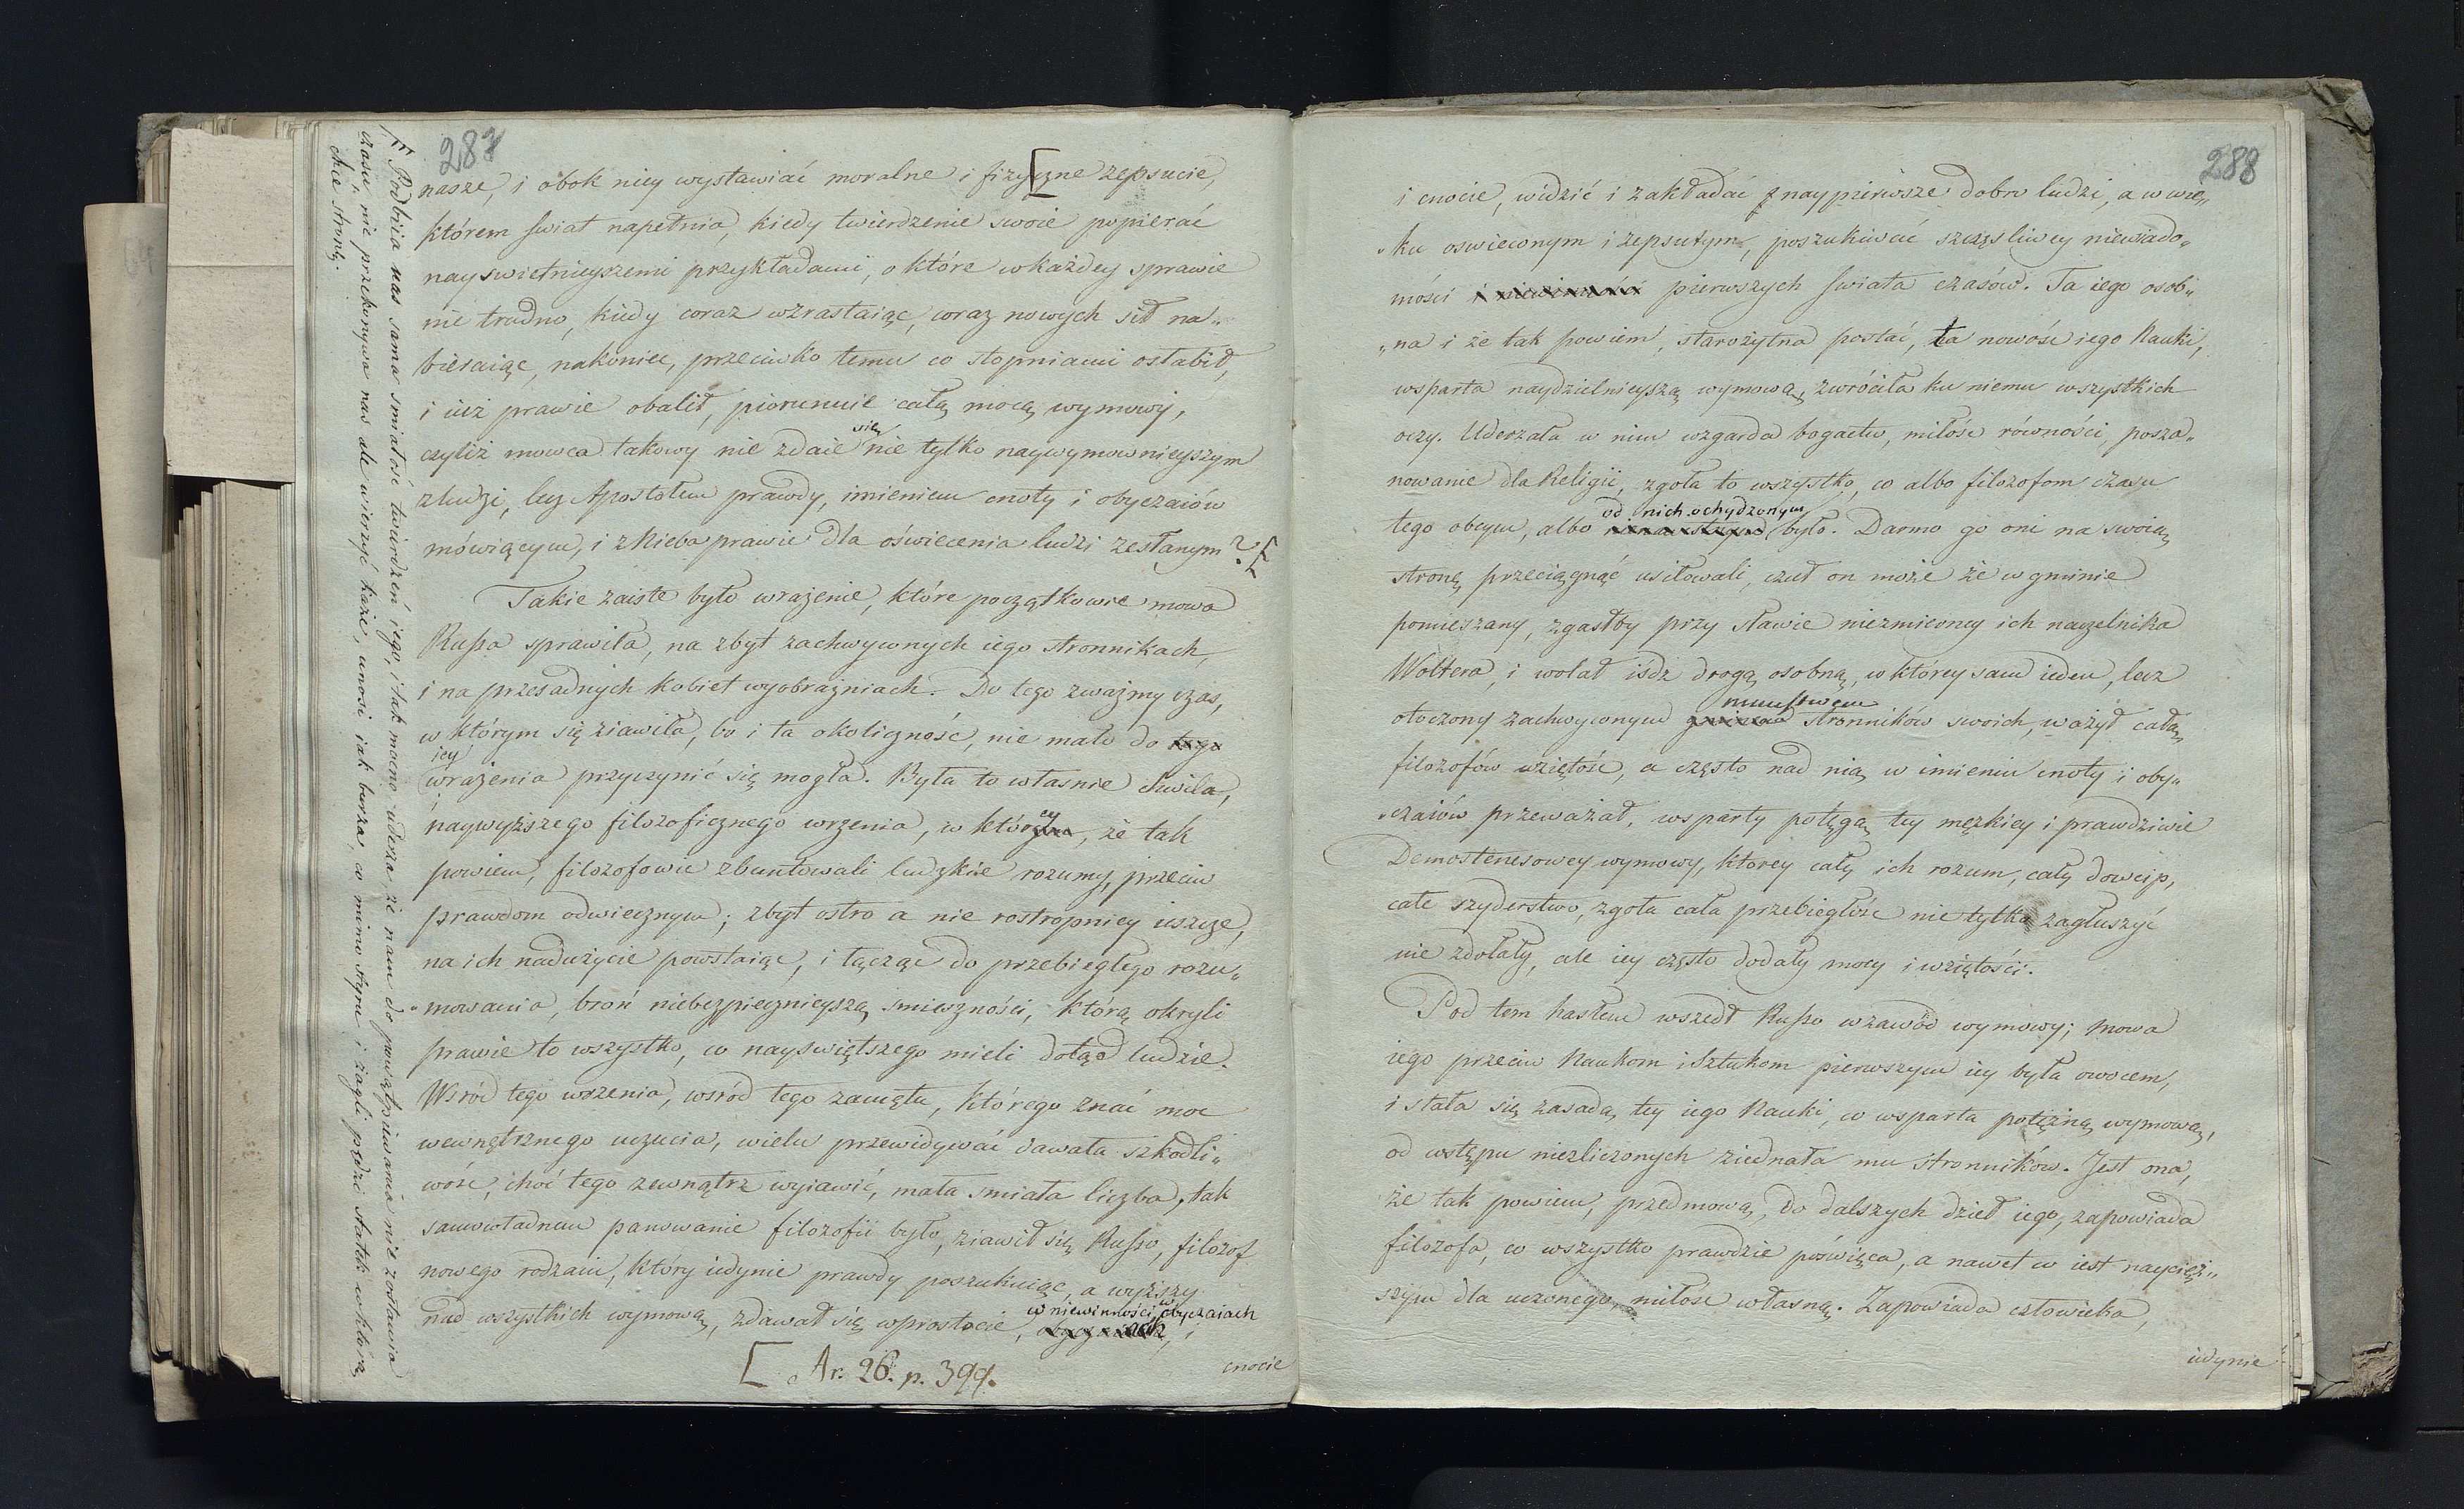 287
nasze, i obok niey wystawiać moralne i fizyczne zepsucie,
którem świat napełnia, kiedy twierdzenie swoie popierać
nayswietnieyszemi przykładami, o które w każdey sprawie
nie trudno, kiedy coraz wzrastaiąc, coraz nowych sił na„
bieraiąc, nakoniec, przeciwko temu co stopniami osłabił,
i iuż prawie obalił, piorunuie całą mocą wymowy,
czyliż mowca takowy nie zdaie się nie tylko naywymownieyszym
z ludzi, lecz Apostołem prawdy, imieniem cnoty i obyczaiów
mówiącym, i z Nieba prawie dla oświecenia ludzi zesłanym? [
Takie zaiste było wrażenie, które początkowie mowa
Russa sprawiła, na zbyt zachwyconych iego stronnikach,
i na przesadnych kobiet wyobraźniach. Do tego zważmy czas,
w którym się ziawiła, bo i ta okoliczność, nie mało do tego
iey
wrażenia przyczynić się mogła. Była to własnie chwila,
naywyższego filozoficznego wrzenia, w którey, że tak
powiem, filozofowie zbuntowali ludzkie rozumy, przeciw
prawdom odwiecznym; zbyt ostro a nie rostropniey ieszcze,
na ich nadużycie powstaiąc, i łącząc do przebiegłego rozu„
„mowania, broń niebezpiecznieyszą śmieszności, którą okryli
prawie to wszystko, co nayświętszego mieli dotąd ludzie.
Wśród tego wrzenia, wśród tego zamętu, którego znać moc
wewnętrznego uczucia, wielu przewidywać dawała szkodli„
wość, choć tego zewnątrz wyiawić, mała smiała liczba, tak
samowładnem panowanie filozofii było, ziawił się Russo, filozof
nowego rodzaiu, który iedynie prawdy poszukuiąc, a wyższy
w niewinności, w obyczaiach
nad wszystkich wymową, zdawał się w prostocie, obyczaiach, i
cnocie
[ Ar. 26. p. 399.
[ Podbiia nas sama smiałość twierdzeń iego, i tak mocno uderza, że nam do powątpiewania nie zostawia
czasu, nie przekonywa nas ale wierzyć każe, unosi iak burza, co mimo steru i żagli pędzi statek w którą
chce stronę.
288
i cnocie, widzić i zakładać naypierwsze dobro ludzi, a w wie„
„ku oswieconym i zepsutym, poszukiwać szczęsliwey niewiado„
mości i niewinności pierwszych świata czasów. Ta iego osob„
„na i że tak powiem, starożytna postać, ta nowość iego Nauki,
wsparta naydzielnieyszą wymową, zwróciła ku niemu wszystkich
oczy. Uderzała w nim wzgarda bogactw, miłość równości, posza„
nowanie dla Religii, zgoła to wszystko, co albo filozofom czasu
od nich ochydzonym
tego obcym, albo było. Darmo go oni na swoią
stronę przeciągnąć usiłowali, czuł on może że w gminie
pomieszany, zgasłby przy sławie niezmierney ich naczelnika
Woltera, i wolał iśdz drogą osobną, w którey sam ieden, lecz
mnustwem
otoczony zachwyconym gminem stronników swoich, ważył całą
filozofów wziętość, a często nad nią w imieniu cnoty i oby„
„czaiów przeważał, wsparty potęgą tey męzkiey i prawdziwie
Demostenesowey wymowy, ktorey cały ich rozum, cały dowcip,
całe szyderstwo, zgoła cała przebiegłość nie tylko zagłuszyć
nie zdołały, ale iey często dodały mocy i wziętości.
Pod tem hasłem wszedł Russo w zawód wymowy; mowa
iego przeciw Naukom i Sztukom pierwszym iey była owocem,
i stała się zasadą tey iego Nauki, co wsparta potężną wymową,
od wstępu niezliczonych ziednała mu stronników. Jest ona,
że tak powiem, przedmową, do dalszych dzieł iego, zapowiada
filozofa, co wszystko prawdzie poświęca, a nawet co iest naycięż„
szym dla uczonego, miłość własną. Zapowiada człowieka,
iedynie